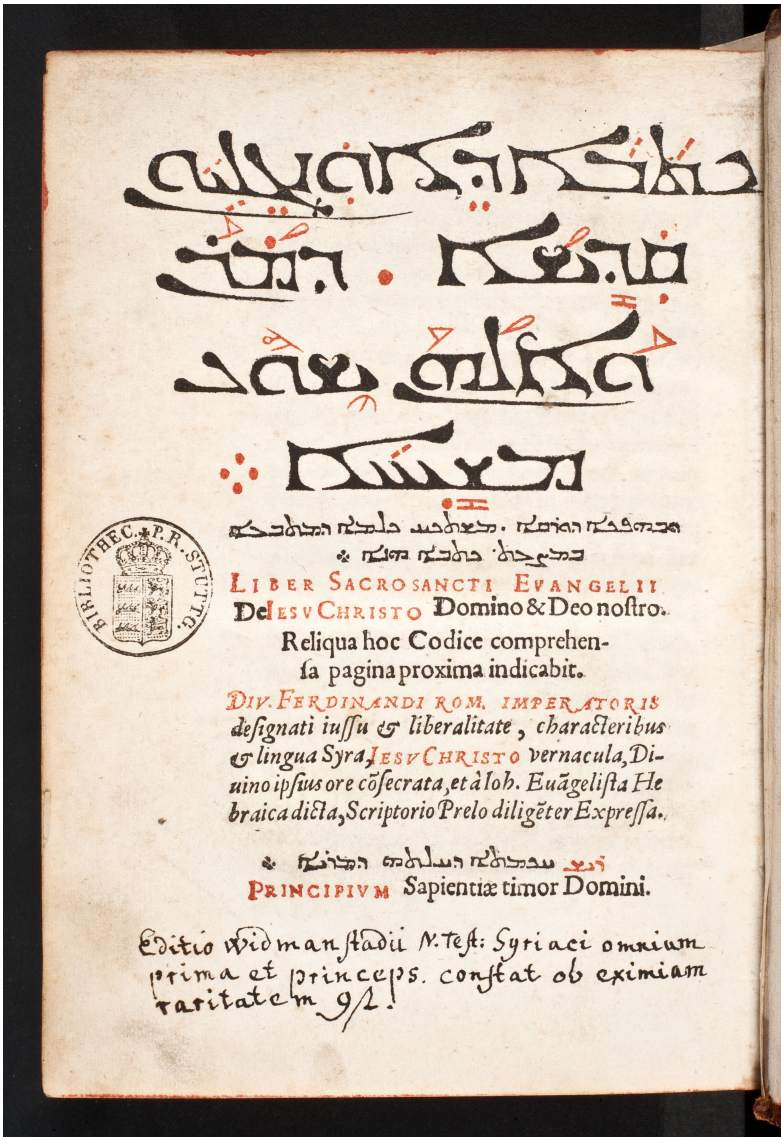 ܟܬܒܐ ܕܐܘܢܓܠܝܘܢ
ܩܕܝܫܐ . ܕܡܪܢ
ܘܐܠܗܢ ܝܫܘܥ
ܡܫܝܚܐ
LIBER SACROSANCTI EVANGELII
De IESV CHRISTO Domino & Deo nostro.
Reliqua hoc Codice comprehen-
sa pagina proxima indicabit.
DIV. FERDINANDI ROM. IMPERATORIS
designati iussu & liberalitate, characteribus
& lingua Syra, IESV CHRISTO vernacula, Di-
uino ipsius ore cõsecrata, et à Ioh. Euãgelista He
braica dicta, Scriptorio Prelo diligẽter Expressa.
ܪܝܫ ܚܟܡܬܐ ܕܚܠܬܗ ܕܡܪܝܐ
PRINCIPIVM Sapientiæ timor Domini.
Editio Widmanstadii N. Test: Syriaci omnium
prima et princeps. constat ob eximiam
raritatem
BIBLIOTHEC. P. R. STUTTG.